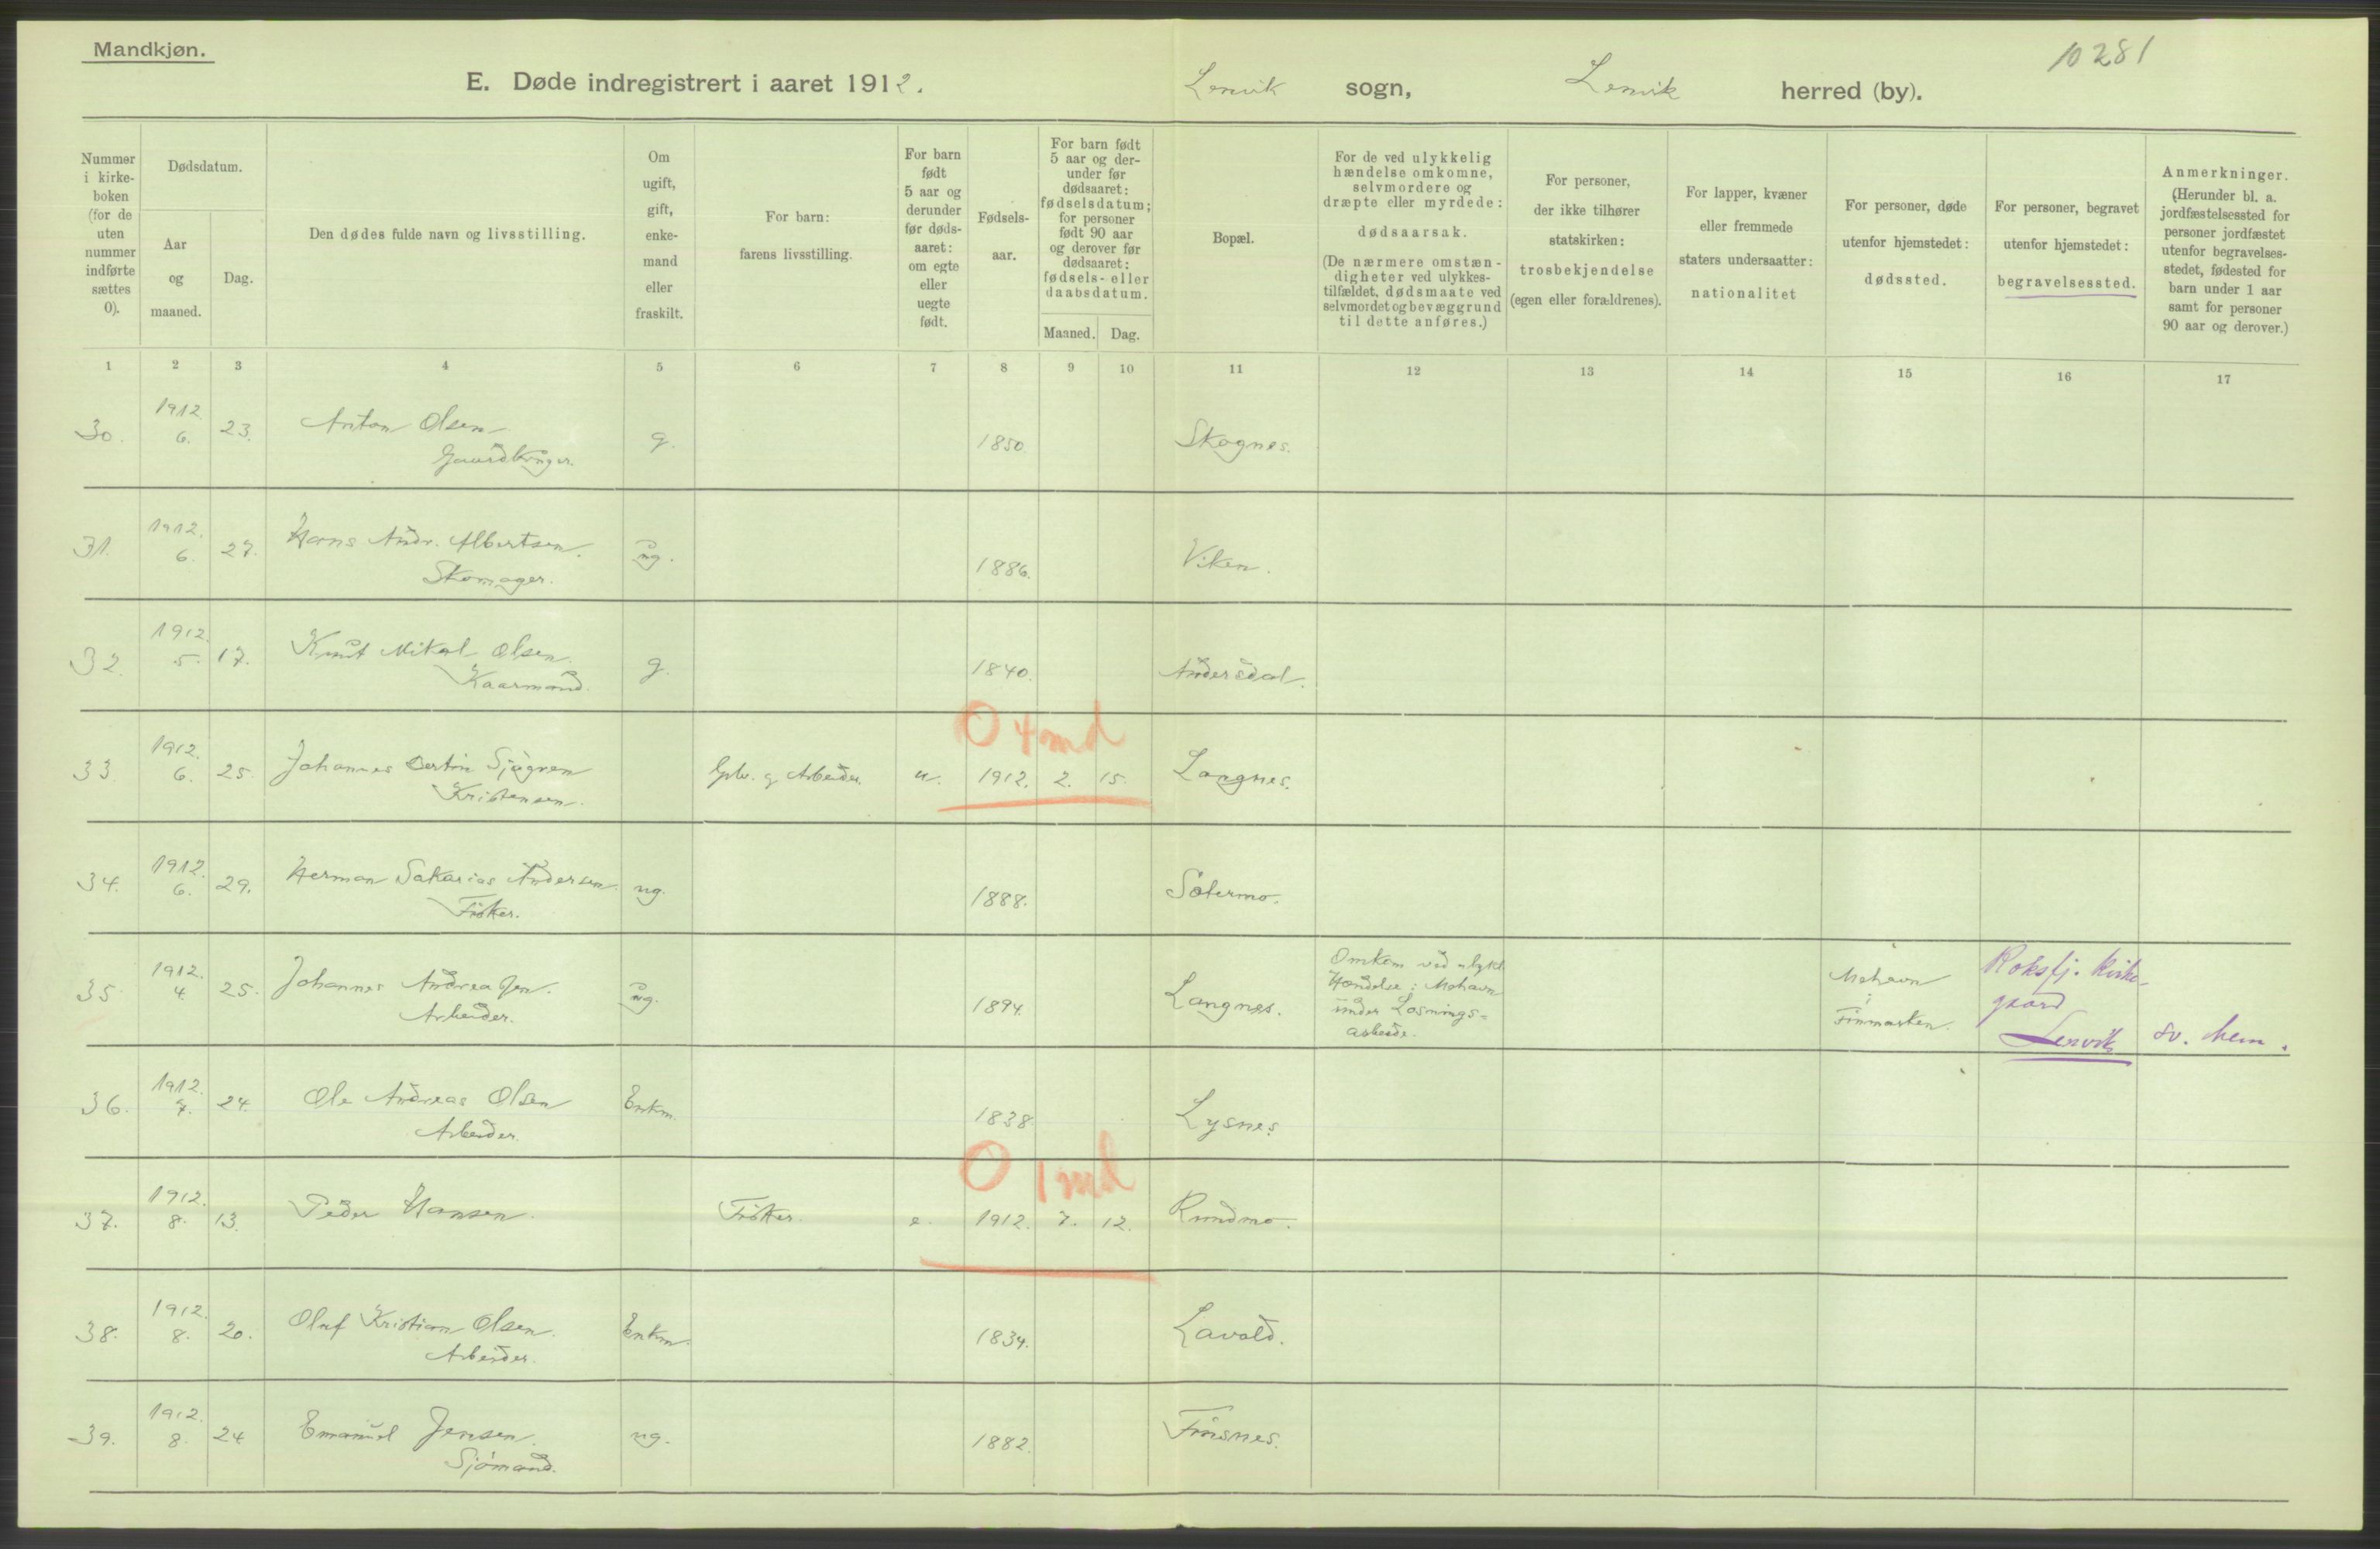 Mandkjøn.
10281
E. Døde indregistrert i aaret 1912. Lenvik sogn, Lenvik herred (by).
Nummer i kirke- boken (for de uten nummer indførte sættes 0).
Dødsdatum.
Aar og maaned.
Dag.
Den dødes fulde navn og livsstilling.
Om ugift, gift, enke- mand eller fraskilt.
For barn: farens livsstilling.
For barn født 5 aar og derunder før døds- aaret: om egte eller uegte født.
Fødsels- aar.
For barn født 5 aar og der- under før dødsaaret: fødselsdatum; for personer født 90 aar og derover før dødsaaret: fødsels- eller daabsdatum.
Maaned. Dag.
Bopæl.
For de ved ulykkelig hændelse omkomne, selvmordere og dræpte eller myrdede: dødsaarsak. (De nærmere omstæn- digheter ved ulykkes- tilfældet, dødsmaate ved selvmordet og bevæggrund til dette anføres.)
For personer, der ikke tilhører statskirken: trosbekjendelse (egen eller forældrenes).
For lapper, kvæner eller fremmede staters undersaatter: nationalitet
For personer, døde utenfor hjemstedet: dødssted.
For personer, begravet utenfor hjemstedet: begravelsessted.
Anmerkninger. (Herunder bl. a. jordfæstelsessted for personer jordfæstet utenfor begravelses- stedet, fødested for barn under 1 aar samt for personer 90 aar og derover.)
1 2 3 4 5 6 7 8 9 10 11 12 13 14 15 16 17
30. 1912. 6. 23. Anton Olsen g. 1850. Skognes.
Gaardbruger.
31. 1912. 6. 27. Hans Andr. Albertsen. ug. 1886. Viken.
Skomager.
32. 1912. 5. 17. Knut Mikal Olsen. g. 1840. Andersdal.
Kaarmand.
0 4 md
33. 1912. 6. 25. Johannes Bertin Sjøgren Gbr. og Arbeider. u. 1912. 2. 15. Langnes.
Kristensen.
34. 1912. 6. 29. Herman Sakarias Andersen. ug. 1888. Sætermo.
Fisker.
35. 1912. 4. 25. Johannes Andreassen. ug. 1894. Langnes.
Arbeider.
Omkom ved ulykk.
Hændelse i Mehavn
under Losnings-
arbeide.
Mehavn
i
Finmarken.
Roksfj. Kirke-
gaard
Lenvik sv. hem.
36. 1912. 7. 24. Ole Andreas Olsen Enkm. 1838. Lysnes.
Arbeider.
0 1 md
37. 1912. 8. 13. Peder Hansen. Fisker. e. 1912. 7. 12. Rundmo.
38. 1912. 8. 20. Oluf Kristian Olsen. Enkm. 1834. Lavold.
Arbeider.
39. 1912. 8. 24 Emanuel Jensen. ug. 1882. Finsnes.
Sjømand.